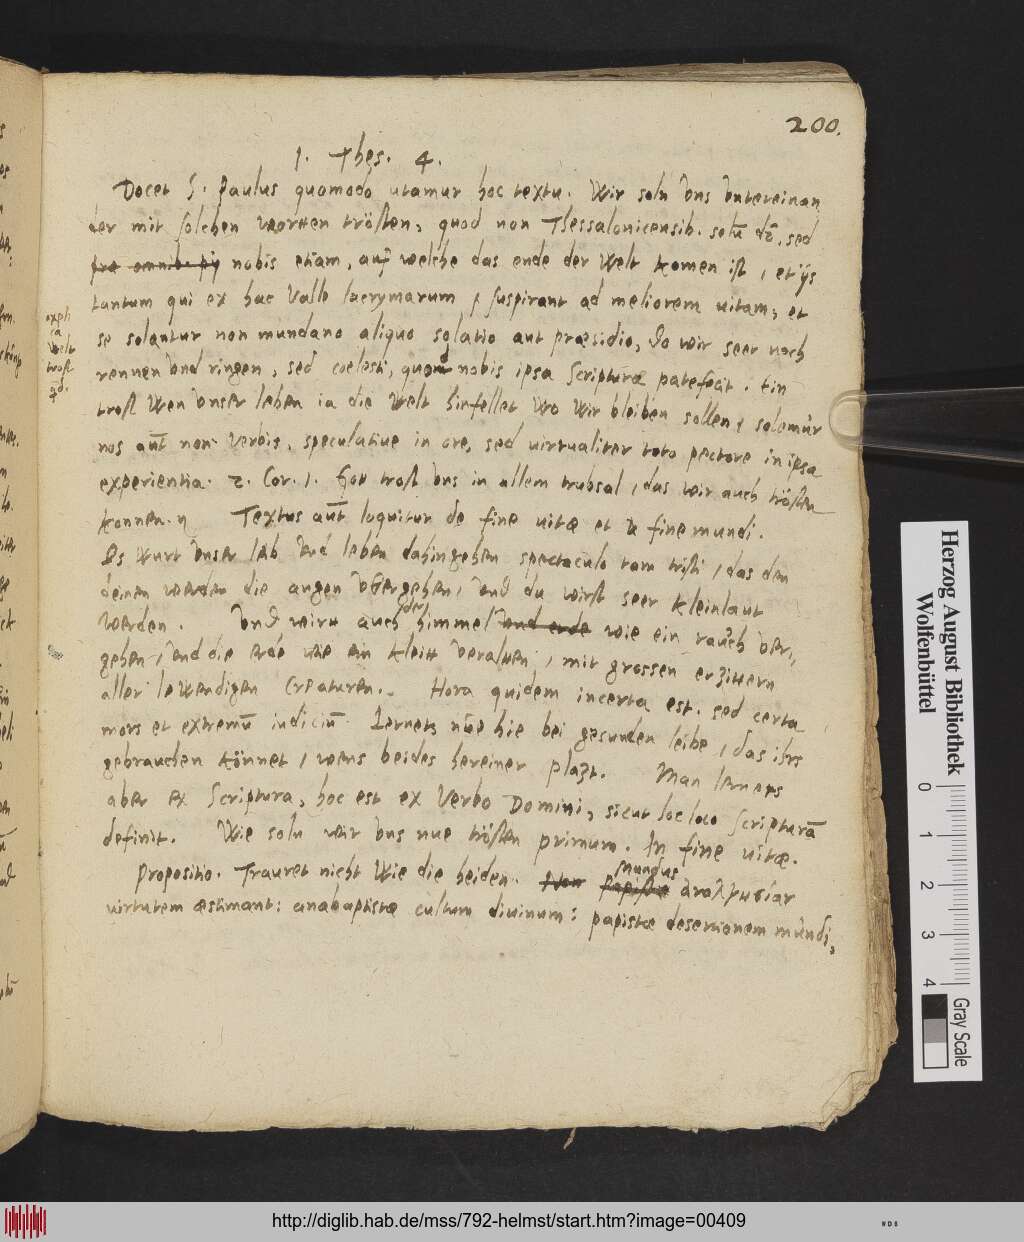 200.
1. Thes. 4.
Docet S. Paulus quomodo utamur hoc textu. Wir soln vns vntereinan
der mit solchen worten trösten, quod non Thessalonicensib. solū dō, sed
pro omnib. pij nobis etiam, auf welche das ende der Welt komen ist, et ijs
tantum qui ex hac Valle lacrymarum suspirant ad meliorem uitam, et
se solantur non mundano aliquo solatio aut præsidio, Do wir seer noch
rennen vnd ringen, sed coelesti, quod nobis ipsa Scripturæ patefecit. Ein
trost Wen vnser leben ia die Welt hinfellet wo wir bleiben sollen, solemur
nos aūt non verbis, speculatiue in ore, sed uirtualiter toto pectore in ipsa
experientia. 2. Cor. 1. Got trost vns in allem trubsal, das wir auch trösten
konnen. Textus aūt loquitur de fine uitæ et de fine mundi.
Es wurt vnser leb vnd leben dahingehen spectaculo tam tristi, das den
deinen werden die augen vbergehen, vnd du wirst seer kleinlaut
werden. Vnd wirt auch der himmel vnd erde wie ein rauch ver,,
gehen, vnd die erde wie ein kleit veralten, mit grossen erzittern
aller lewendigen Creaturen. Hora quidem incerta est, sed certa
mors et extremū iudiciū. Lernets nue hie bei gesunden leibe, das ihrs
gebrauchen könnet, wens beides hereiner plazt. Man lernets
aber ex Scriptura, hoc est ex Verbo Domini, sicut hoc loco Scripturā
definit. Wie soln wir vns nue trösten primum. In fine uitæ.
Propositio. Trauret nicht Wie die heiden. Non papistæ mundus ἀναλγησίαν
uirtutem æstimant: anabaptistæ cultum diuinum: papistæ desertionem mundi,
welt
trost
Herzog August Bibliothek
Wolfenbüttel
0 1 2 3 4
Gray Scale
http://diglib.hab.de/mss/792-helmst/start.htm?image=00409